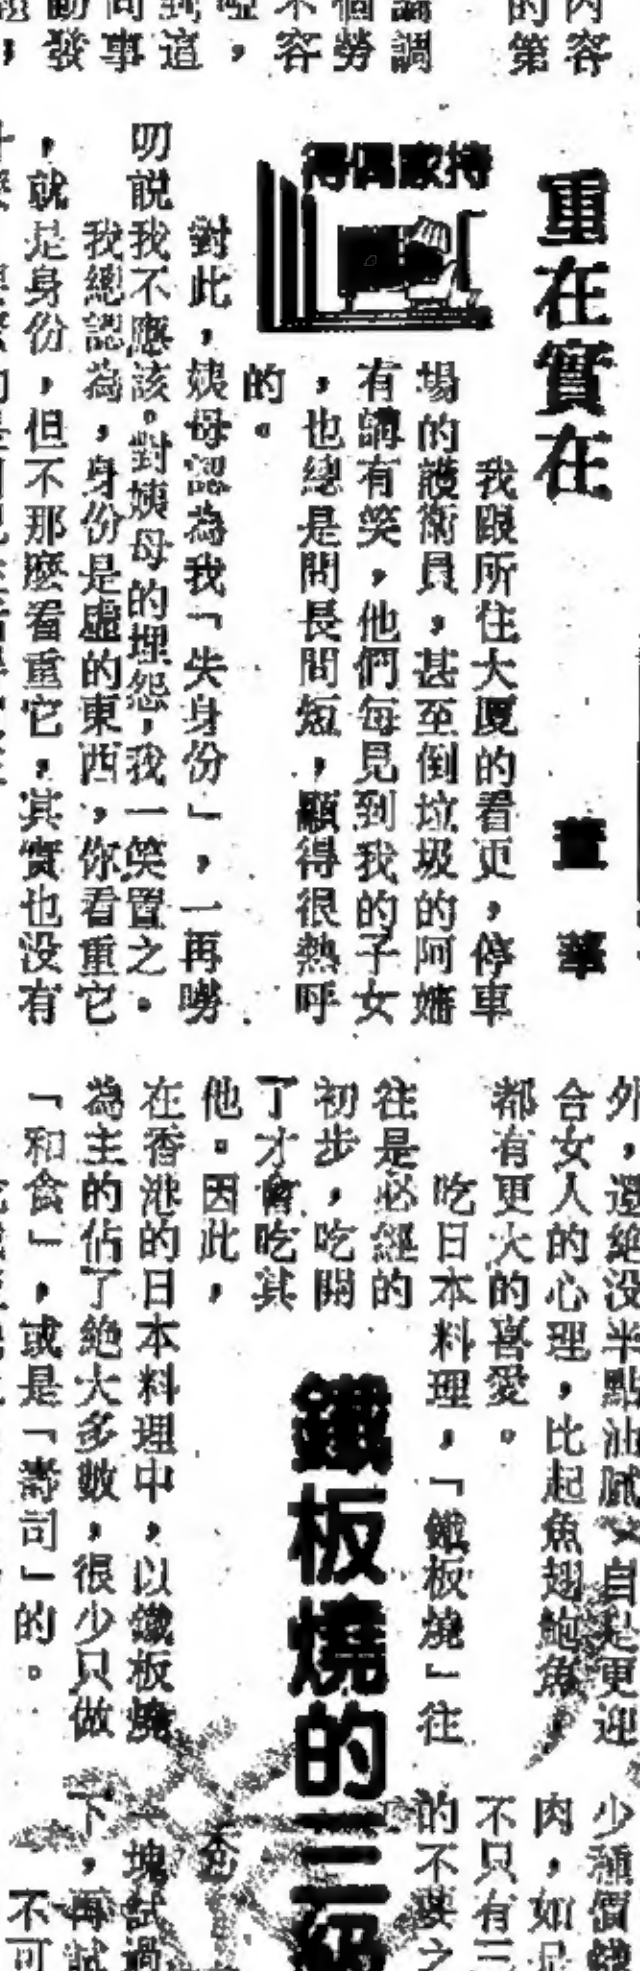 內容
的第
論調
個勞
不容
，
到這
同事
動發
題，
重在實在
董華
持家偶得
我跟所住大廈的看更，停車
場的護衛員，甚至倒垃圾的阿嬸
有講有笑，他們每見到我的子女
，也總是問長問短，顯得很熱呼
的。
對此，姨母認為我「失身份」，一再嘮
叨說我不應該。對姨母的埋怨，我一笑置之。
我總認為，身份是虛的東西，你看重它
，就是身份，但不那麼看重它，其實也沒有
外，還絕沒半點油膩，自是更迎
合女人的心理，比起魚翅鮑魚，
都有更大的喜愛。
吃日本料理，「鐵板燒」往
往是必經的
初步，吃開
了才會吃其
他。因此，
鐵板燒的三級
在香港的日本料理中，以鐵板燒
為主的佔了絕大多數，很少只做
「和食」，或是「壽司」的。
少種價錢
肉，如是
不只有三
的不要之
一塊試過
下，再試
不可